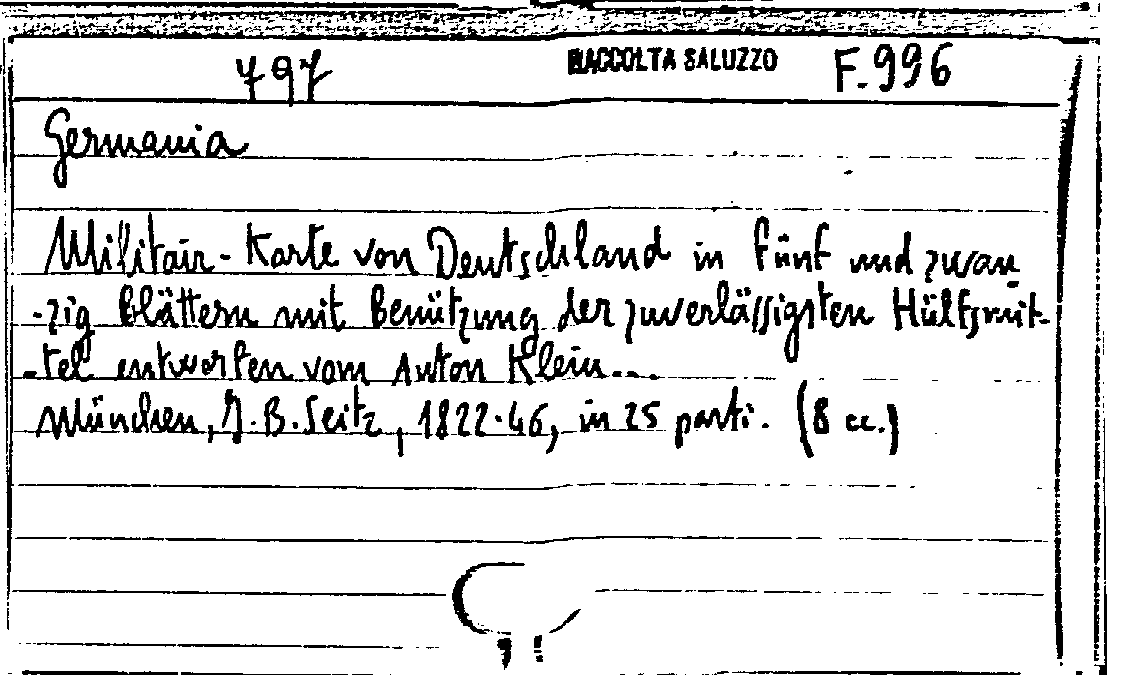 797 RACCOLTA SALUZZO F.996
Germania
Militair-Karte von Deutschland in fünf und zwan
-zig Blättern mit Benützung der zuverlässigsten Hülfsmit-
-tel entworfen vom Anton Klein...
München, J.B. Seitz, 1822-46, in 25 parti. (8 cc.)